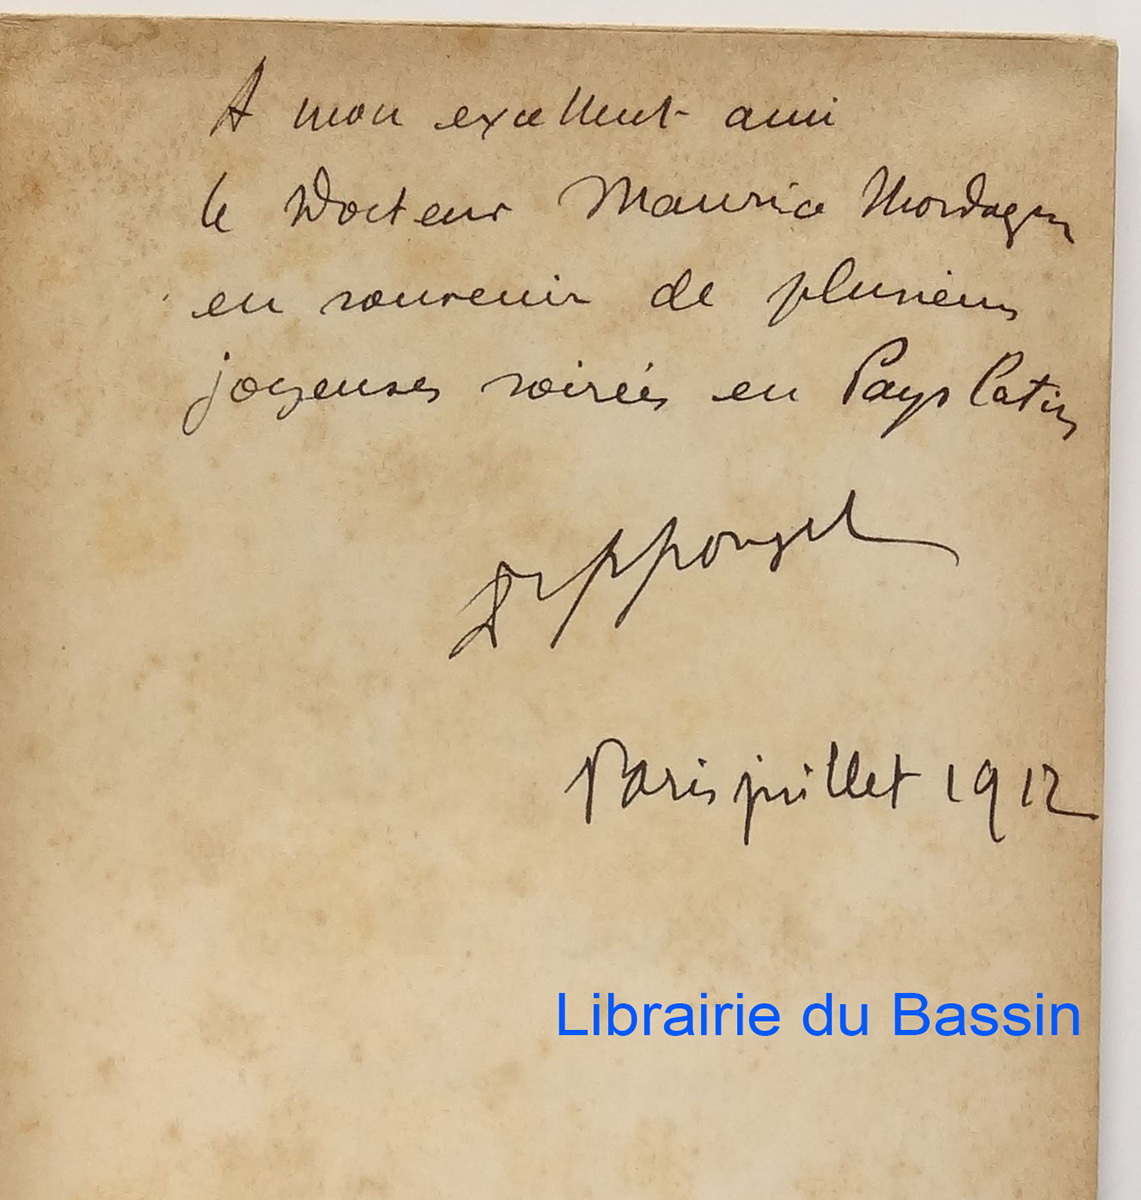 A mon excellent ami
le Docteur Maurice
en souvenir de plusieurs
joyeuses soirées en Pays latin
Paris juillet 1912
Librairie du Bassin